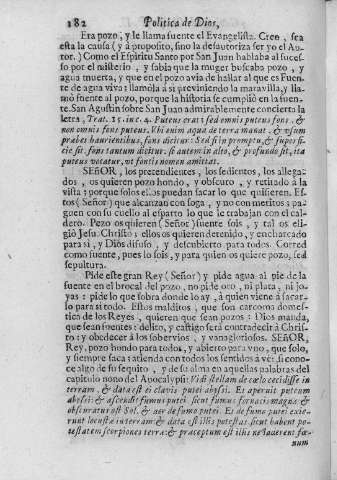 182 Politica de Dios,
Era pozo, y le llama fuente el Evangelista. Creo, sea
esta la causa (y à proposito, sino la desautoriza ser yo el Au-
tor.) Como el Espiritu Santo por San Juan hablaba al suces-
so por el misterio, y sabia que la muger buscaba pozo, y
agua muerta, y que en el pozo avia de hallar al que es Fuen-
te de agua viva: llamòla à si previniendo la maravilla, y lla-
mò fuente al pozo, porque la historia se cumpliò en la fuen-
te. San Agustin sobre San Juan admirablemente concierta la
letra, Trat. 15. inc. 4. Puteus erat: sed omnis puteus fons, &
non omnis fons puteus. Vbi enim aqua de terra manat, & vsum
præbet haurientibus, fons dicitur: Sed si in promptu, & superfi-
cie sit fons tantum dicitur: si autem in alto, & profundo sit, ita
puteus vocatur, vt fontis nomen amittat.
SEÑOR, los pretendientes, los sedientos, los allega-
dos, os quieren pozo hondo, y obscuro, y retirado à la
vista: porque solos ellos puedan sacar lo que quisieren. Es-
tos (Señor) que alcanzan con soga, y no con meritos: pa-
guen con su cuello al esparto lo que le trabajan con el cal-
dero. Pozo os quieren (Señor) fuente sois, y tal os eli-
giò Jesu Christo: ellos os quieren detenido, y encharcado
para si, y Dios difuso, y descubierto para todos. Corred
como fuente, pues lo sois, y para quien os quiere pozo, sed
sepultura.
Pide este gran Rey (Señor) y pide agua al pie de la
fuente en el brocal del pozo, no pide oro, ni plata, ni jo-
yas: pide lo que sobra donde lo ay, à quien viene à sacar-
lo para si todo. Ellos malditos, que son carcoma domes-
tica de los Reyes, quieren que sean pozos: Dios manda,
que sean fuentes: delito, y castigo serà contradecir à Chris-
to: y obedecer à los sobervios, y vanagloriosos. SEÑOR,
Rey, pozo hondo para todos, y abierto para vno, que solo,
y siempre saca: atienda con todos los sentidos à vèr si cono-
ce algo de su sequito, y de su alma en aquellas palabras del
capitulo nono del Apocalypsi: Vidi stellam de cœlo cecidisse in
terram, & data est ei clavis putei abyssi: Et aperuit puteum
abyssi: & ascendit fumus putei sicut fumus fornacis magnæ: &
obscuratur est Sol, & aer de fumo putei. Et de fumo putei exie-
runt locustæ in terram: & data est illis potestas sicut habent po-
testatem scorpiones terræ: & præceptum est illis ne læderent fœ-
num